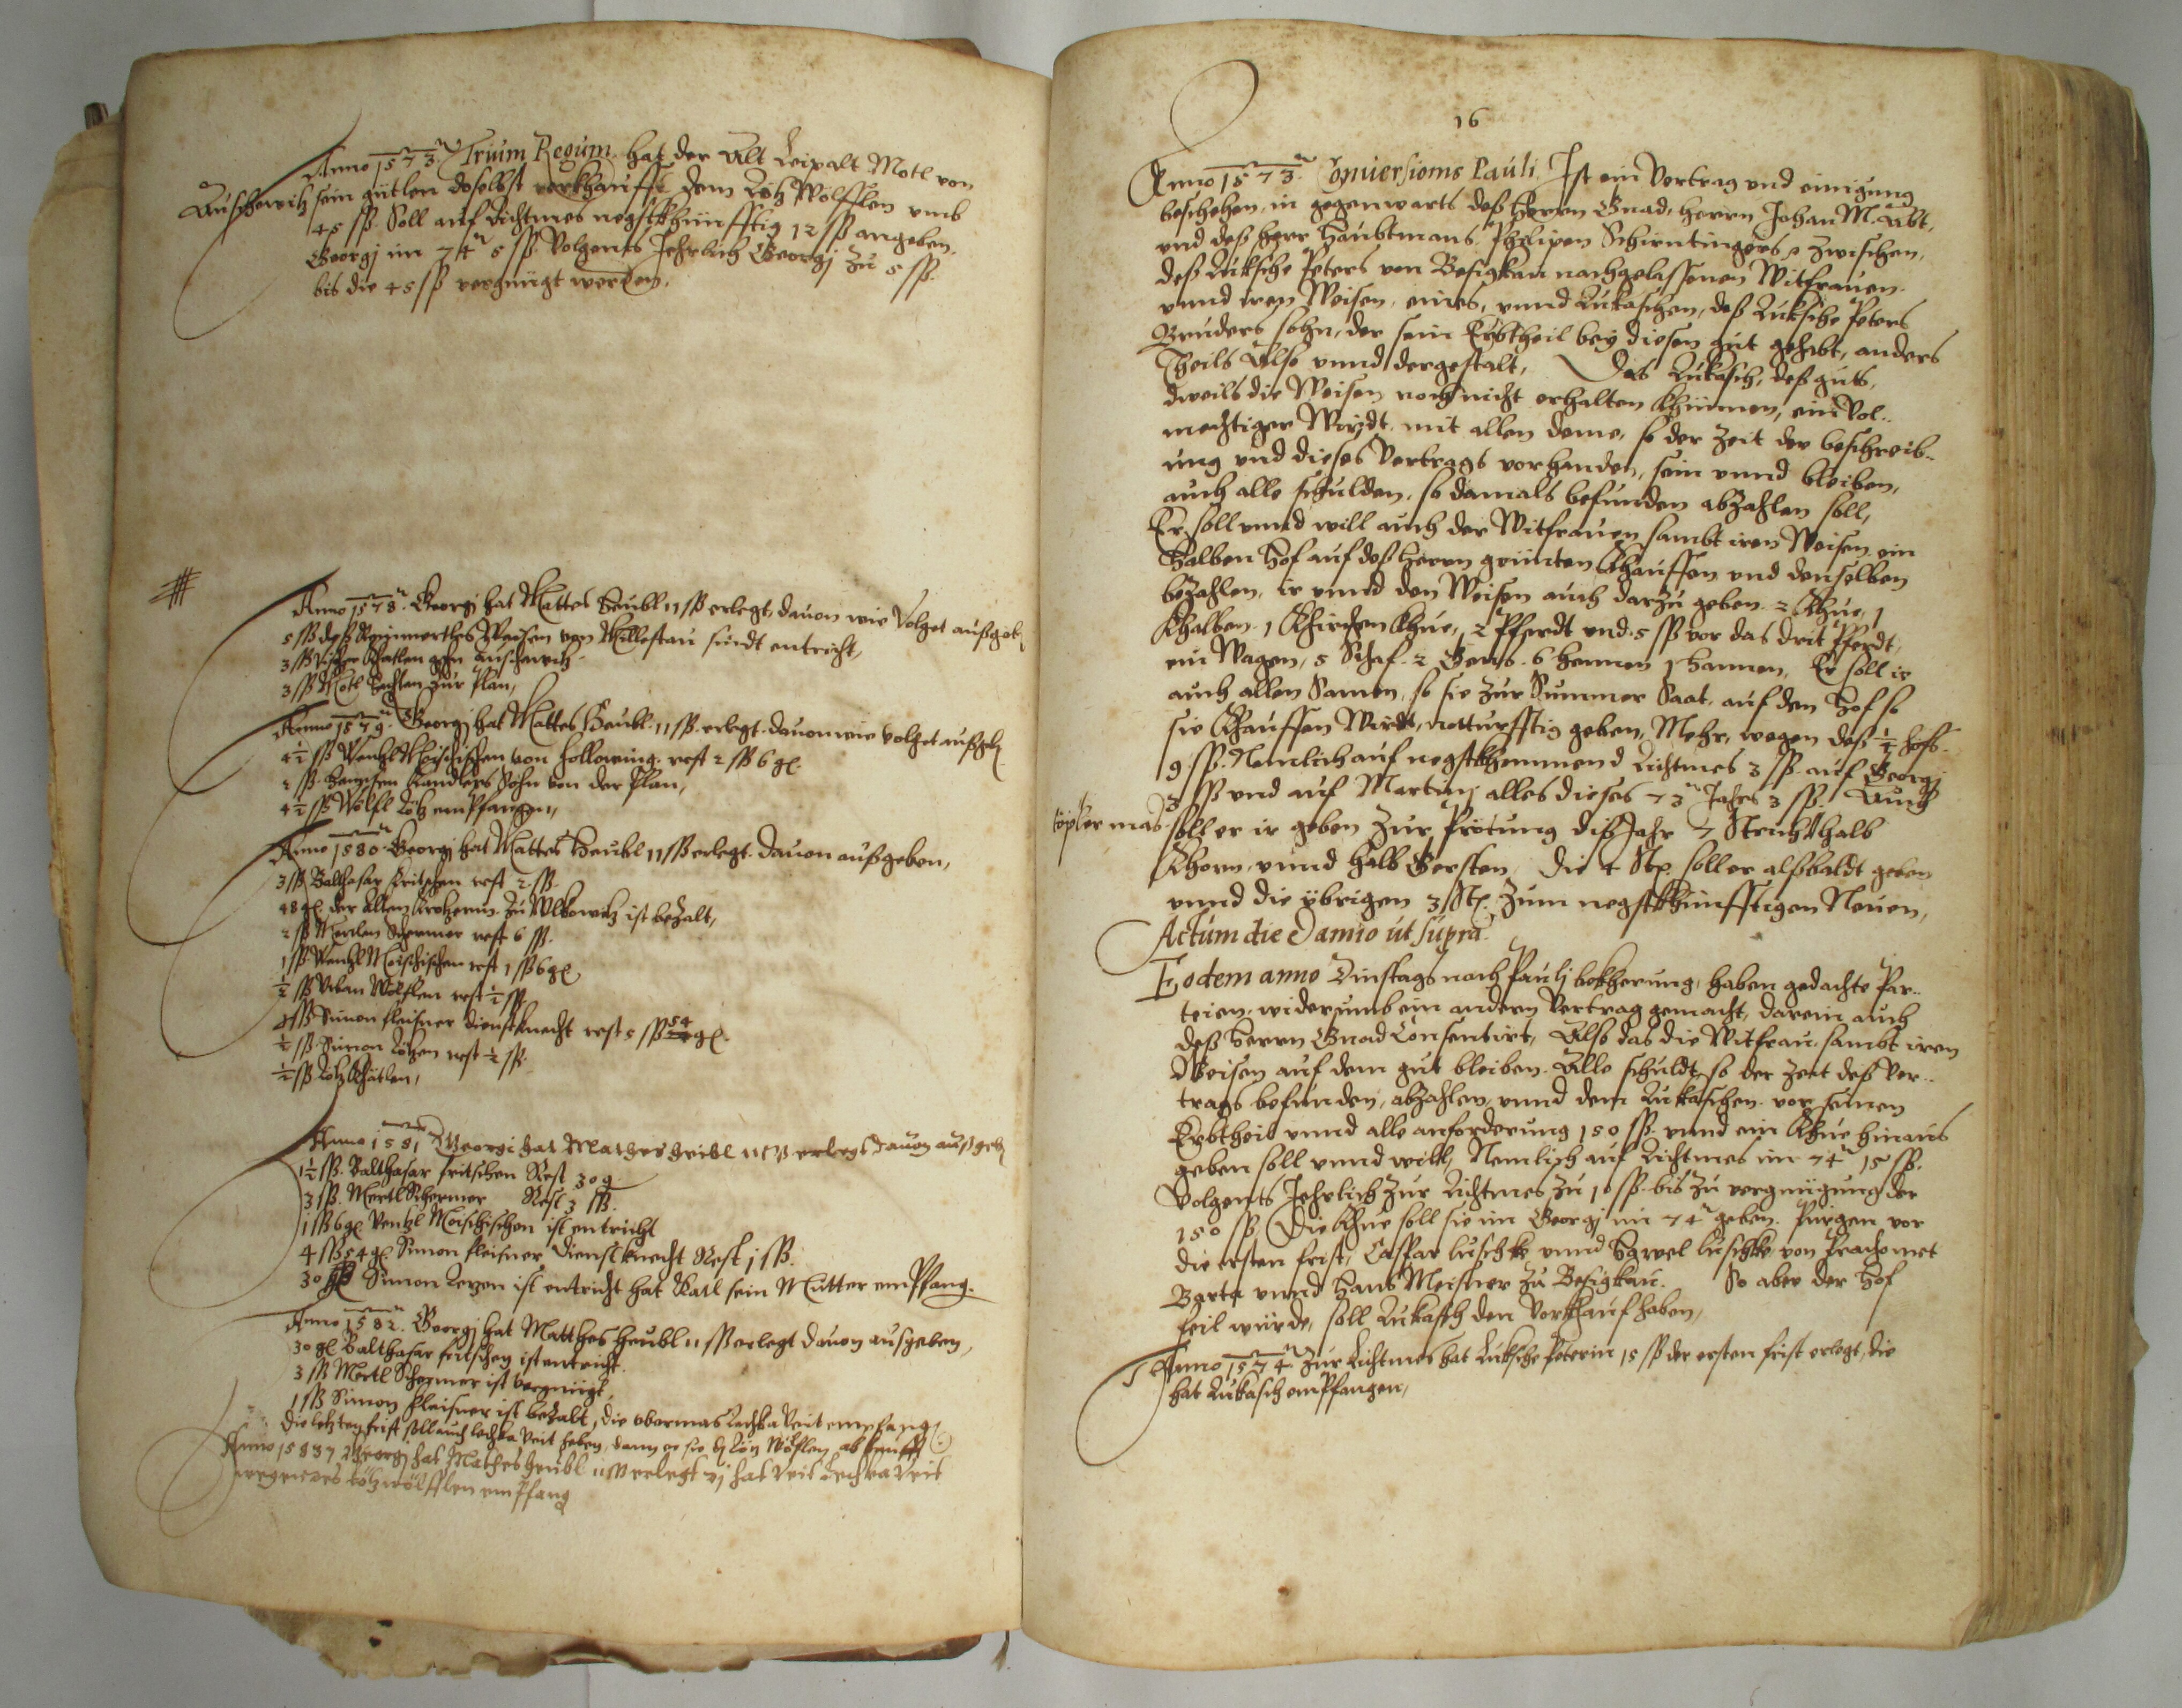 Anno 1573 Trium Regum hat der Alt Leipalt Motl von
Auschowitz sein gütlen doselbst verkhaufft dem Lötz Wölfflen umb
45 ßß. Soll auf Lichtmes negstkhünfftig 12 ßß angeben.
Georgj im 74n 5 ßß. Volgents Jehrlich Georgj zu 5 ßß.
bis die 45 ßß vergnügt werden.
Anno 1578 Georgj hat Mattes Heubl 11 ßß erlegt, dauon wie Volget außgeb
5 ßß deß Weisen von Millestau sindt entricht,
3 ßß
3 ßß Motl zur Plan,
Anno 1579. Georgj hat Mattes Heubl 11 ßß. erlegt. dauon wie volget außgeb
4½ ßß Wenzl Moischischen von rest 2 ßß 6 gl.
2 ßß Sohn von der Plan,
4½ ßß Wölfl Lötz empfangen,
Anno 1580. Georgj hat Mattes Heubl 11 ßß erlegt. Dauon außgeben,
3 ßß Balthasar fritschen rest 2 ßß.
48 gl. der Alten zu Wlkowitz ist bezalt,
2 ßß Mertlen Schermer rest 6 ßß.
1 ßß Wenzl Moischischen rest 1 ßß 6 gl.
½ ßß Urban Wölflen rest ½ ßß.
ßß Simon fleisner dienstknecht rest 5 ßß 54 gl.
½ ßß. Simon Lötzen rest ½ ßß.
½ ßß Lötz
Anno 1581 Georgi hat Mathes heibl 11 ßß erlegt dauon außgeb
1½ ßß. Balthasar fritschen Rest 30 g
3 ßß. Mertl Schermer Rest 3 ßß.
1 ßß 6 gl Ventzl Moischischen ist entricht
4 ßß 54 gl Simon fleisner Dienstknecht Rest 1 ßß.
30 gl Simon Lezen ist entricht hat sein Mutter empfang.
Anno 1582. Georgj hat Matthes Heubl 11 ßß erlegt dauon ausgeben,
30 gl Balthasar fritschen ist entricht.
3 ßß Mertl Schermer ist vergnügt,
1 ßß Simon fleisner ist bezalt, die ubermas Lechka Veit empfang
die letzten frist soll auch Lechka Veit heben, dann er sie Lötz Wölflen ab kaufft
Anno 1583 Georgj hat Mathes heubl 11 ßß erlegt hat Veit Lechka Veit
wegen des lötz wölfflen empfang
16
Anno 1573. Conuersionis Pauli. Ist ein Vertrag und einigung
beschehen, in gegenwarts deß Herrn Gnad, herrn Johan M. Abt,
und deß herr Haubtmans Philipen Schirntingers zwischen,
deß Luksche Peters von Besigkau nachgelassenen Witfrauen
unnd iren Weisen, eines, unnd Lukaschen, deß Luksche Peters
Bruders sohn, der sein Erbtheil bey diesen gut gehebt, anders
Theils Also unnd dergestalt, Das Lukasch, deß guts,
dweils die Weisen noch nicht erhalten khünnen, ein Vol..
mechtiger Wirdt, mit allen deme, so der Zeit der beschreib..
ung und dieses Vertrags vorhanden, sein unnd bleiben,
auch alle schulden, so damals befunden abzahlen soll,
Er soll unnd will auch der Witfrauen sambt iren Weisen ein
Halben Hof auf deß Herrn grünten khauffen und denselben
bezahlen, ir unnd den Weisen auch darzu geben. 2 Khüe, 1
Khalben. 1 Khirchen Khue, 2 Pferdt und 5 ßß vor das drit Pferdt,
ein Wagen, 5 Schaf. 2 Gens. 6 hennen 1 hannen, Er soll ir
auch allen Samen, so sie zur Summer Saat, auf dem Hof so
sie khauffen Wirdt, notturfftig geben, Mehr, wegen deß ½ hofs.
9 ßß. Nemlich auf negstkhommend Lichtmes 3 ßß auf Georgj
3 ßß und auf Martinj alles dieses 73n Jahrs 3 ßß. Auch
soll er ir geben zur Prötung diß Jahr 7 Strich halb
Khorn, unnd halb Gersten, Die 4 Str. soll er alßbaldt geben
unnd die übrigen 3 Str. zum negstkhünfftigen Neuen,
Actum die & anno ut supra.
Eodem anno Dinstags nach Paulj bekherung, haben gedachte Par..
teien, widerumb ein andern Vertrag gemacht, darein auch
deß Herrn Gnad Consentirt, Also das die Witfrau sambt iren
Weisen auf dem gut bleiben. Alle schuldt, so der Zeit deß Ver..
trags befunden, abzahlen, unnd dem Lukaschen vor seinen
Erbtheil unnd alle anforderung 150 ßß. unnd ein Khue hinaus
geben soll unnd will, Nemlich auf Lichtmes im 74n 15 ßß.
Volgents Jehrlich zur Lichtmes zu 10 ßß. bis zu vergnügung der
150 ßß, Die Khue soll sie im Georgj im 74n geben. Pürgen vor
die ersten frist, Caspar luschke unnd Havel luschke von Prachomet
Barta unnd Hans Meisner zu Besigkau. So aber der Hof
feil würde, soll Lukasch den Vorkhauf haben,
Anno 1574 Zur Lichtmes hat Luksche Peterin 15 ßß der ersten frist erlegt, die
hat Lukasch empfangen,